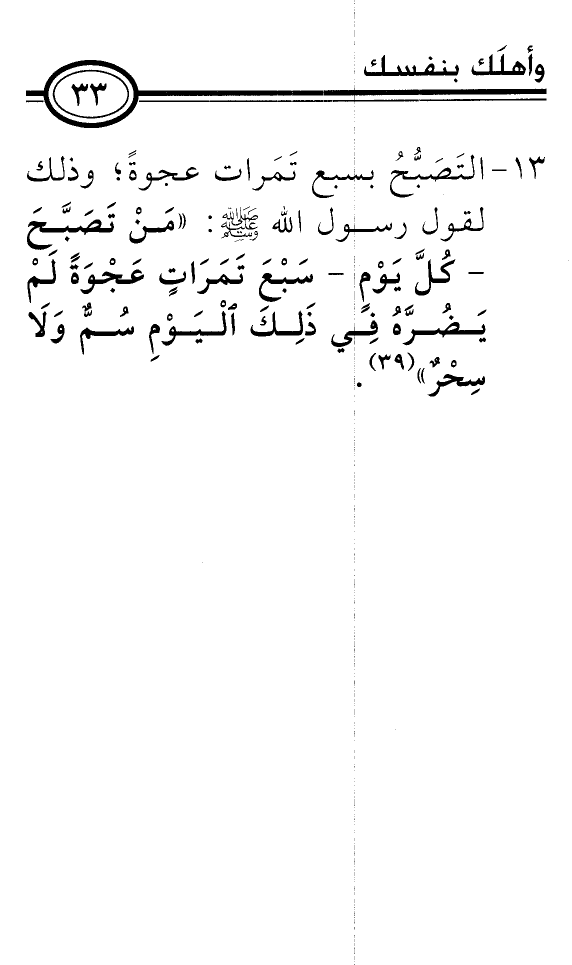 وأهلَك بنفسك
٣٣
١٣- التَصَبُّحُ بسبع تَمَرات عجوةً؛ وذلك
لقول رســول الله ﷺ: «مَـنْ تَصَبَّـحَ
- كُلَّ يَوْمٍ - سَبْعَ تَمَرَاتٍ عَجْوَةً لَمْ
يَـضُـــرَّهُ فِــي ذَلِـكَ ٱلْـيَـوْمِ سُــمٌّ وَلَا
سِحْرٌ»(٣٩).